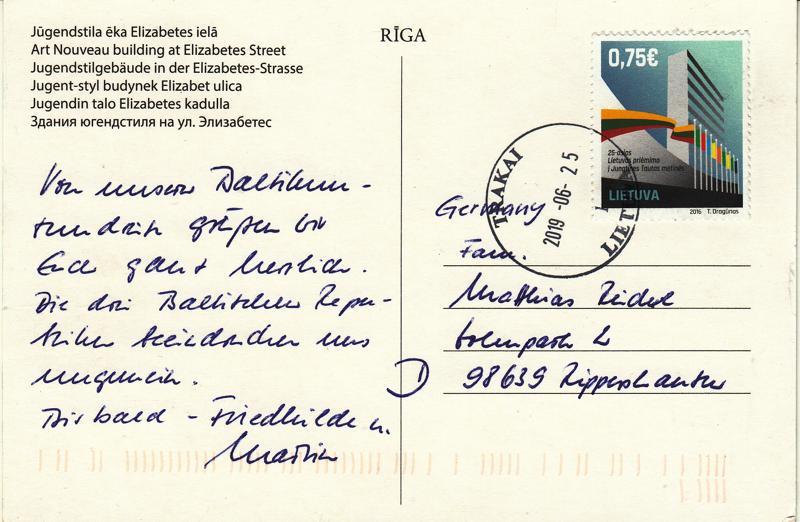 Jūgendstila ēka Elizabetes ielā
Art Nouveau building at Elizabetes Street
Jugendstilgebäude in der Elizabetes-Strasse
Jugent-styl budynek Elizabet ulica
Jugendin talo Elizabetes kadulla
Здания югендстиля на ул. Элизабетес
RĪGA
0,75€
25-asias
Lietuvos priėmimo
į Jungtines Tautas metinės
LIETUVA
2016 T. Dragūnas
TRAKAI
2019-06-25
Von unserer Baltikum-
rundreise grüßen wir
Euch ganz herzlich.
Die drei Baltischen Repu-
bliken beeindrucken uns
ungemein.
Bis bald - Friedhilde u.
Martin
Germany
Fam.
Matthias
D 98639 Rippershausen